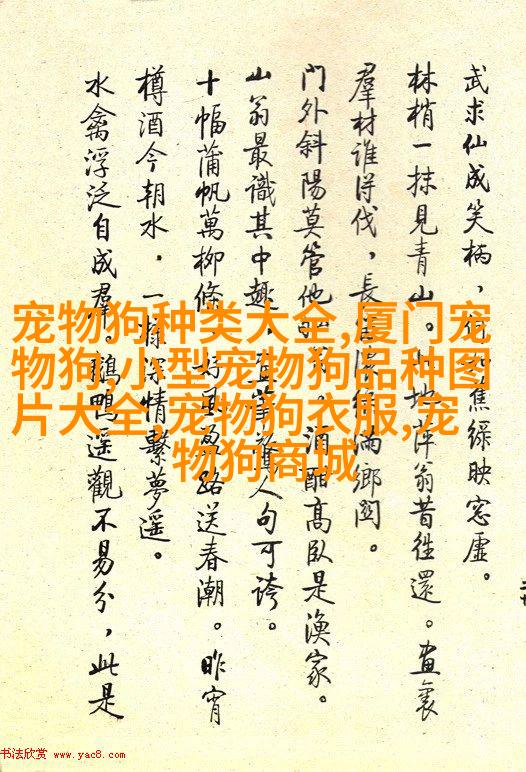 宠物狗种类大全,厦门宠
物狗,小型宠物狗品种图
片大全,宠物狗衣服,宠
物狗商城
武求仙成笑柄，蕉綠映窓虛。
林梢一抹見青山。地萍翁昔往還。畫裏
羣材誰得伐，長留濃綠滿鄉關。
門外斜陽莫管他。酒酣高臥是漁家。
山翁最識其中趣，驚人句可誇。
十幅蒲帆萬柳條。好風盈路送春潮。昨宵
樽酒今朝水，一樣深情繫夢遥。
水禽浮泛自成羣。鵝鴨遥觀不易分，此是
书法欣赏 www.yac8.com